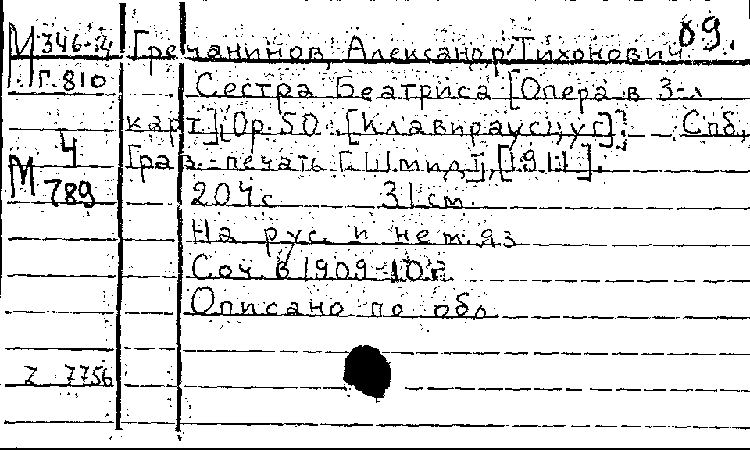 09.
М 346-4 Гречанинов, Александр Тихонович
Г.810 Сестра Беатриса [Опера в 3-х
карт]. Ор. 50. [Клавираусцуг]. Спб,
4 Грав.-печать Г. Шмидт, [1911].
М 789 204 с 31 см.
На рус. и нем. яз
Соч. в 1909-10 г.
Описано по обл
Z 7756